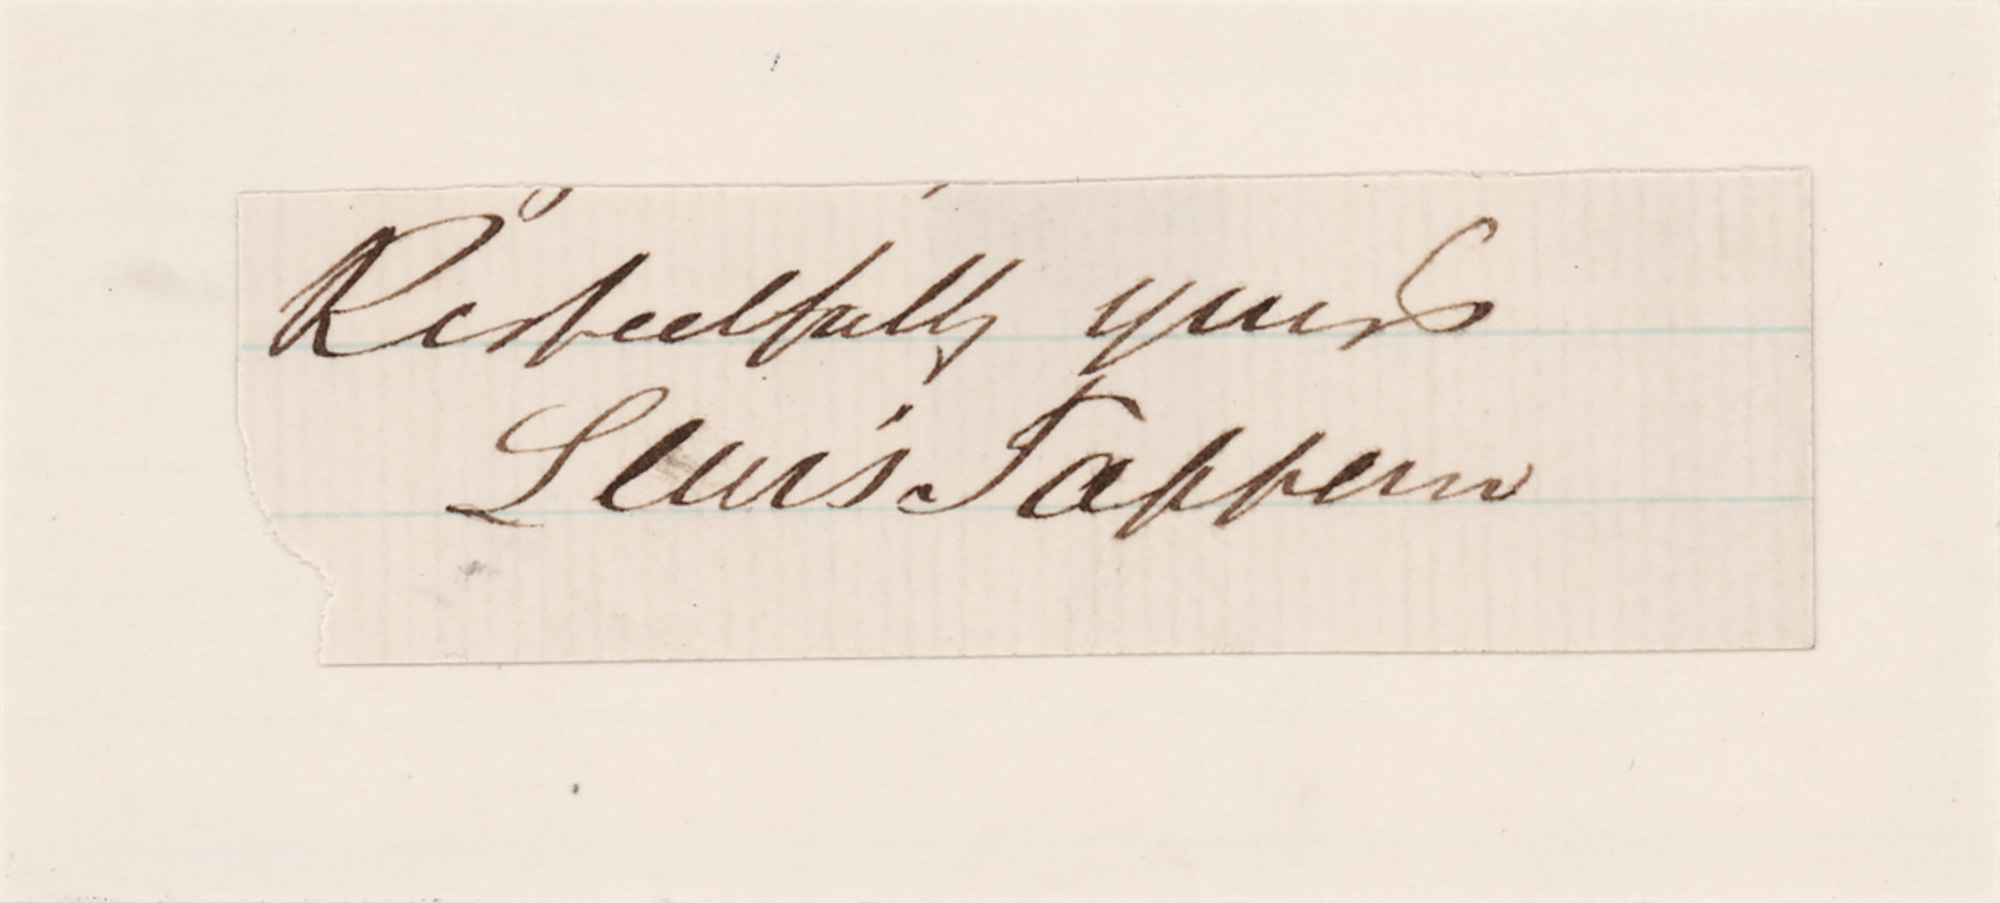 Respectfully yours
Lewis Tappan